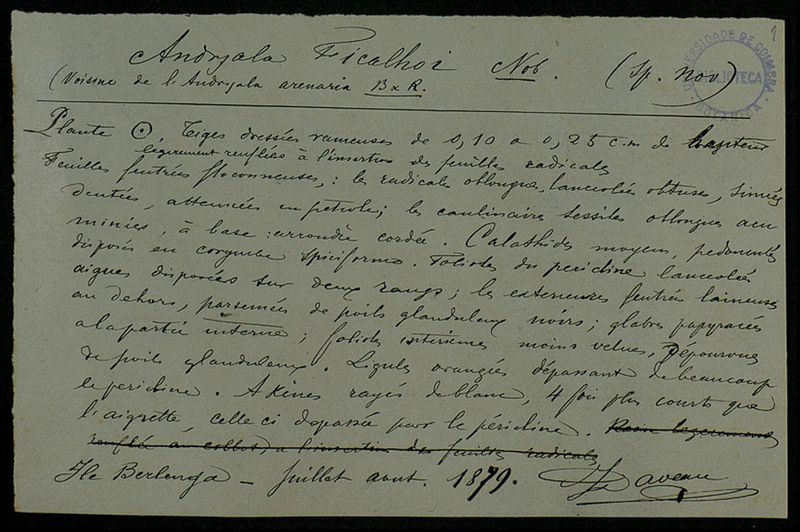 1
Andryala Ficalhoi Nob. (Sp. nov)
UNIVERSIDADE DE COIMBRA BIBLIOTECA BOTANICA
(Voisine de l'Andryala arenaria B x R.
Plante ⊙, Tiges dressées rameuses de 0,10 a 0,25 c.m de hauteur
légèrement renflées à l'insertion des feuilles radicales
Feuilles feutrées floconneuses,: les radicales oblongues, lanceolées obtuses, sinuées
dentées, attenuées en petiole; les caulinaires sessiles oblongues acu
minées, à base: arrondie cordée. Calathides moyens, pedonculés
disposés en corymbe spiciforme. Folioles du pericline lanceolées
aigues disposées sur deux rangs; les exterieures feutrées laineuses
au dehors, parsemées de poils glanduleux noirs; glabres papyracées
a la partie interne; folioles interieures moins velues, Dépourvues
de poils glanduleux. Ligules orangées dépassant de beaucoup
le pericline. Akènes rayés de blanc, 4 fois plus courts que
l'aigrette, celle ci depassée par le péricline. legerement
renflé au collet, a l'insertion des feuilles radicales
Ile Berlenga - Juillet aout. 1879. J Daveau